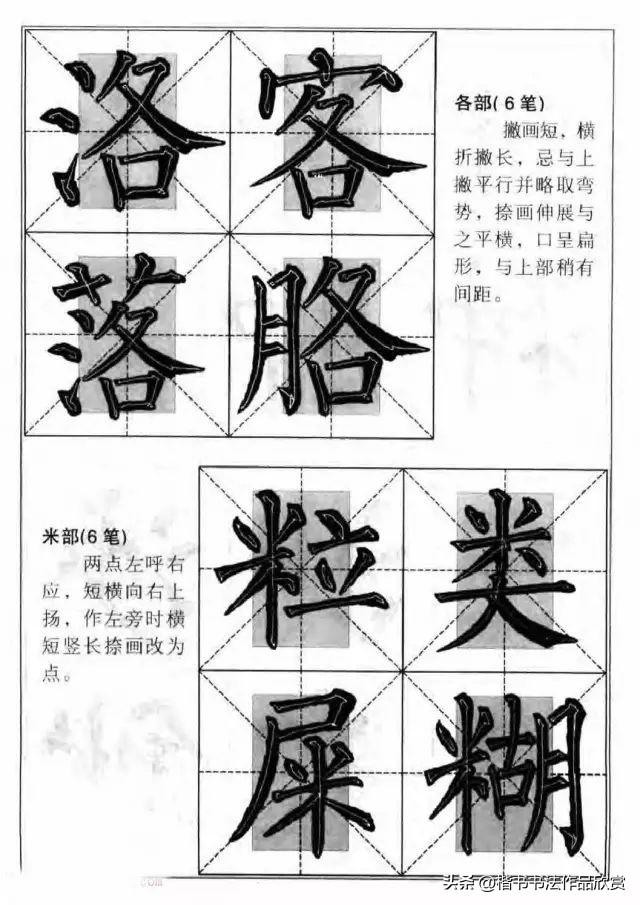 洛客
各部(6笔)
撇画短，横
折撇长，忌与上
撇平行并略取弯
势，捺画伸展与
之平横，口呈扁
形，与上部稍有
间距。
落胳
米部(6笔)
两点左呼右
应，短横向右上
扬，作左旁时横
短竖长捺画改为
点。
粒类
屎糊
com
头条@楷书书法作品欣赏